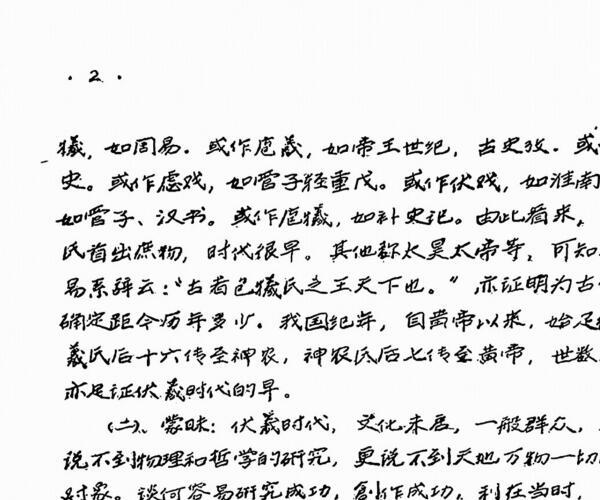 ·2·
犧，如周易．或作庖羲，如帝王世纪，古史攷．或
史。或作虙戏，如管子轻重戊。或作伏戏，如淮南
如管子、汉书。或作庖犧，如补史记。由此看来，
氏首出庶物，时代很早。其他称太昊太帝等，可知
易系辞云："古者包犧氏之王天下也。"亦证明为古
确定距今历年多少。我国纪年，自黄帝以来，始足
羲氏后十六传至神农，神农氏后七传至黄帝，世数
亦足证伏羲时代的早。
(二)、蒙昧：伏羲时代，文化未启，一般群众，
说不到物理和哲学的研究，更说不到天地万物一切
对象。谈何容易研究成功，创作成功，利在当时，